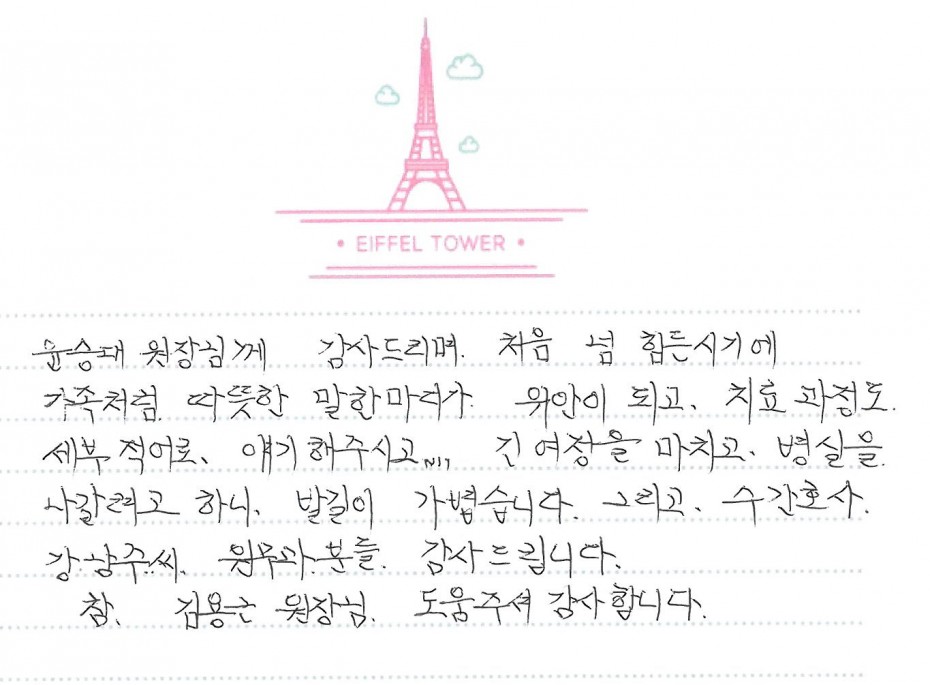 • EIFFEL TOWER •
윤승대 원장님께 감사드리며. 처음 넘 힘든시기에
가족처럼. 따뜻한 말한마디가 위안이 되고, 치료 과정도.
세부적어로, 얘기해주시고,,, 긴 여정을 마치고, 병실을
나갈려고 하니, 발길이 가볍습니다. 그리고, 수간호사.
강향주씨. 원무과.분들. 감사드립니다.
참, 김용근 원장님. 도움주셔 감사합니다.